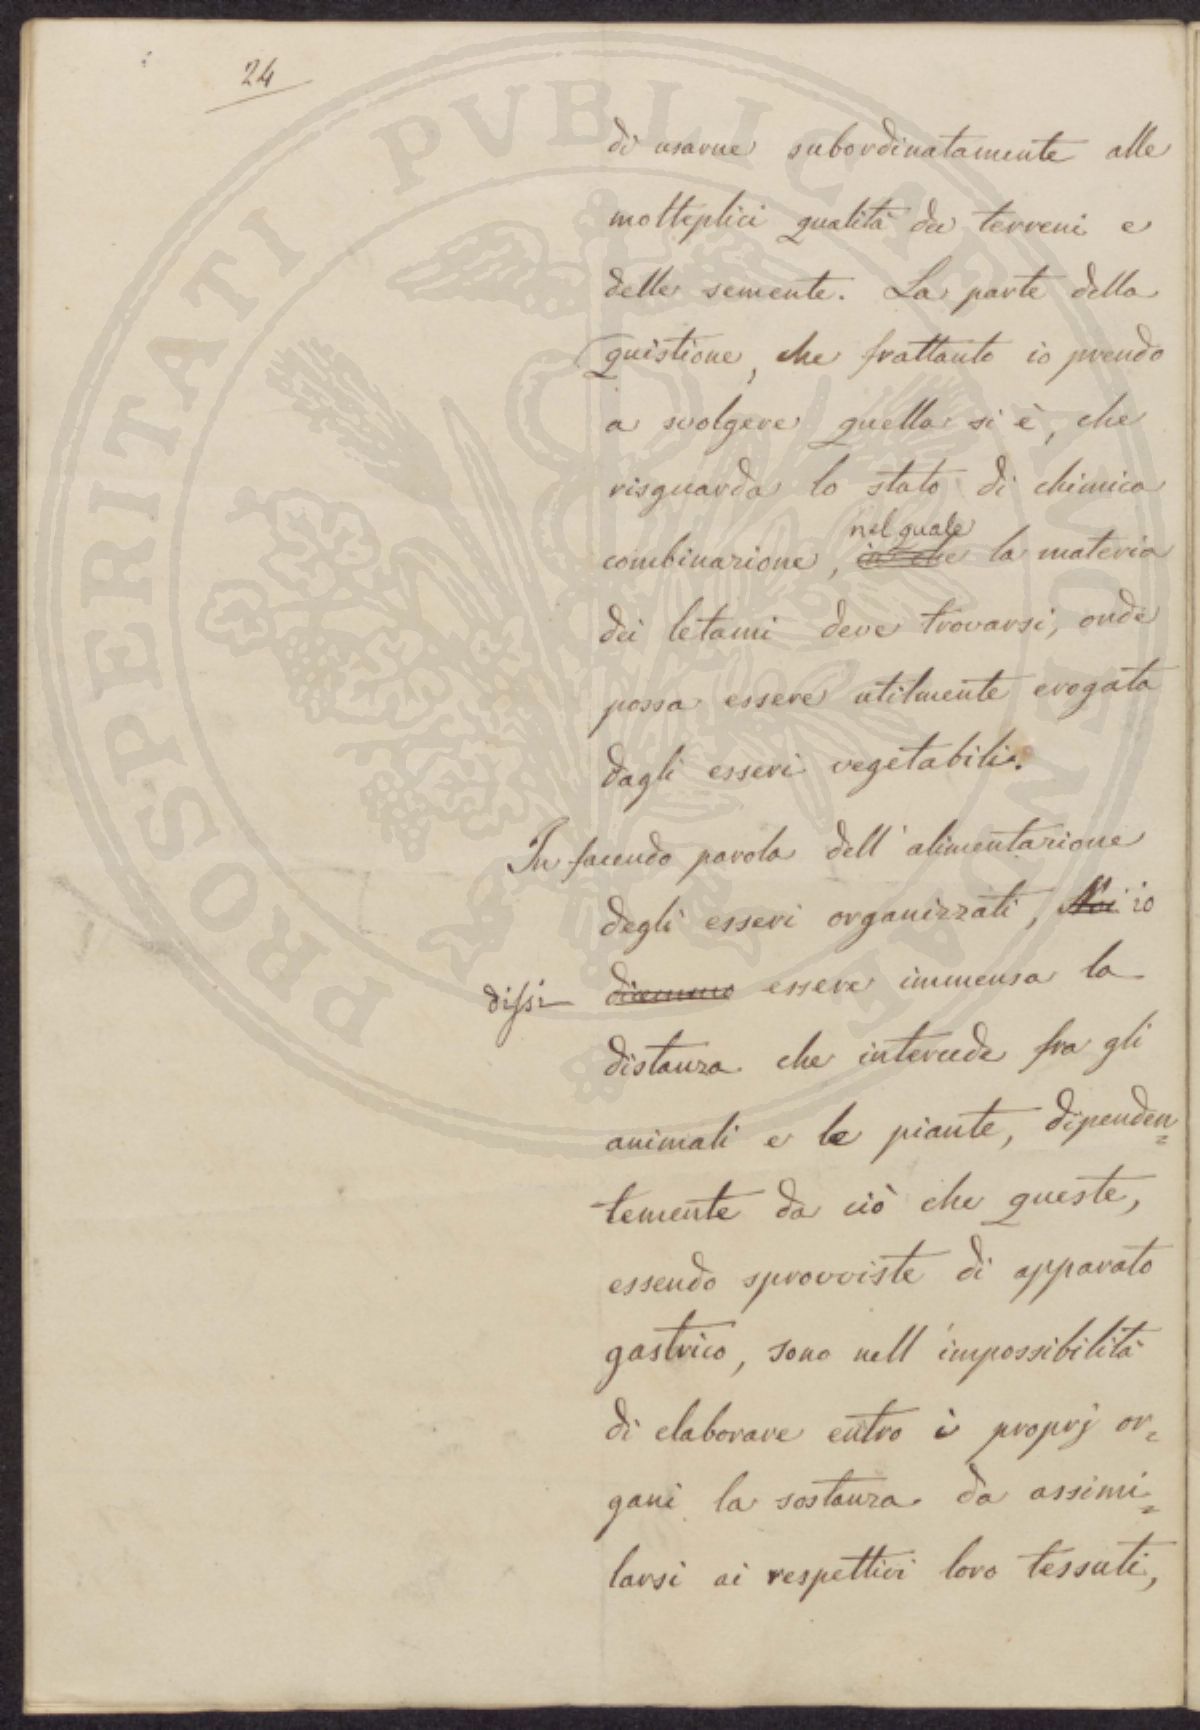 24
di usarne subordinatamente alle
molteplici qualità dei terreni e
delle semente. La parte della
quistione, che frattanto io prendo
a svolgere quella si è, che
risguarda lo stato di chimica
nel quale
combinazione, in che la materia
dei letami deve trovarsi, onde
possa essere utilmente erogata
dagli esseri vegetabili.
In facendo parola dell'alimentazione
degli esseri organizzati, Noi io
dissi diremmo essere immensa la
distanza che intercede fra gli
animali e le piante, dipenden=
temente da ciò che queste,
essendo sprovviste di apparato
gastrico, sono nell'impossibilità
di elaborare entro i proprj or=
gani la sostanza da assimi=
larsi ai respettivi loro tessuti,
PROSPERITATI PVBLICAE AVGENDAE